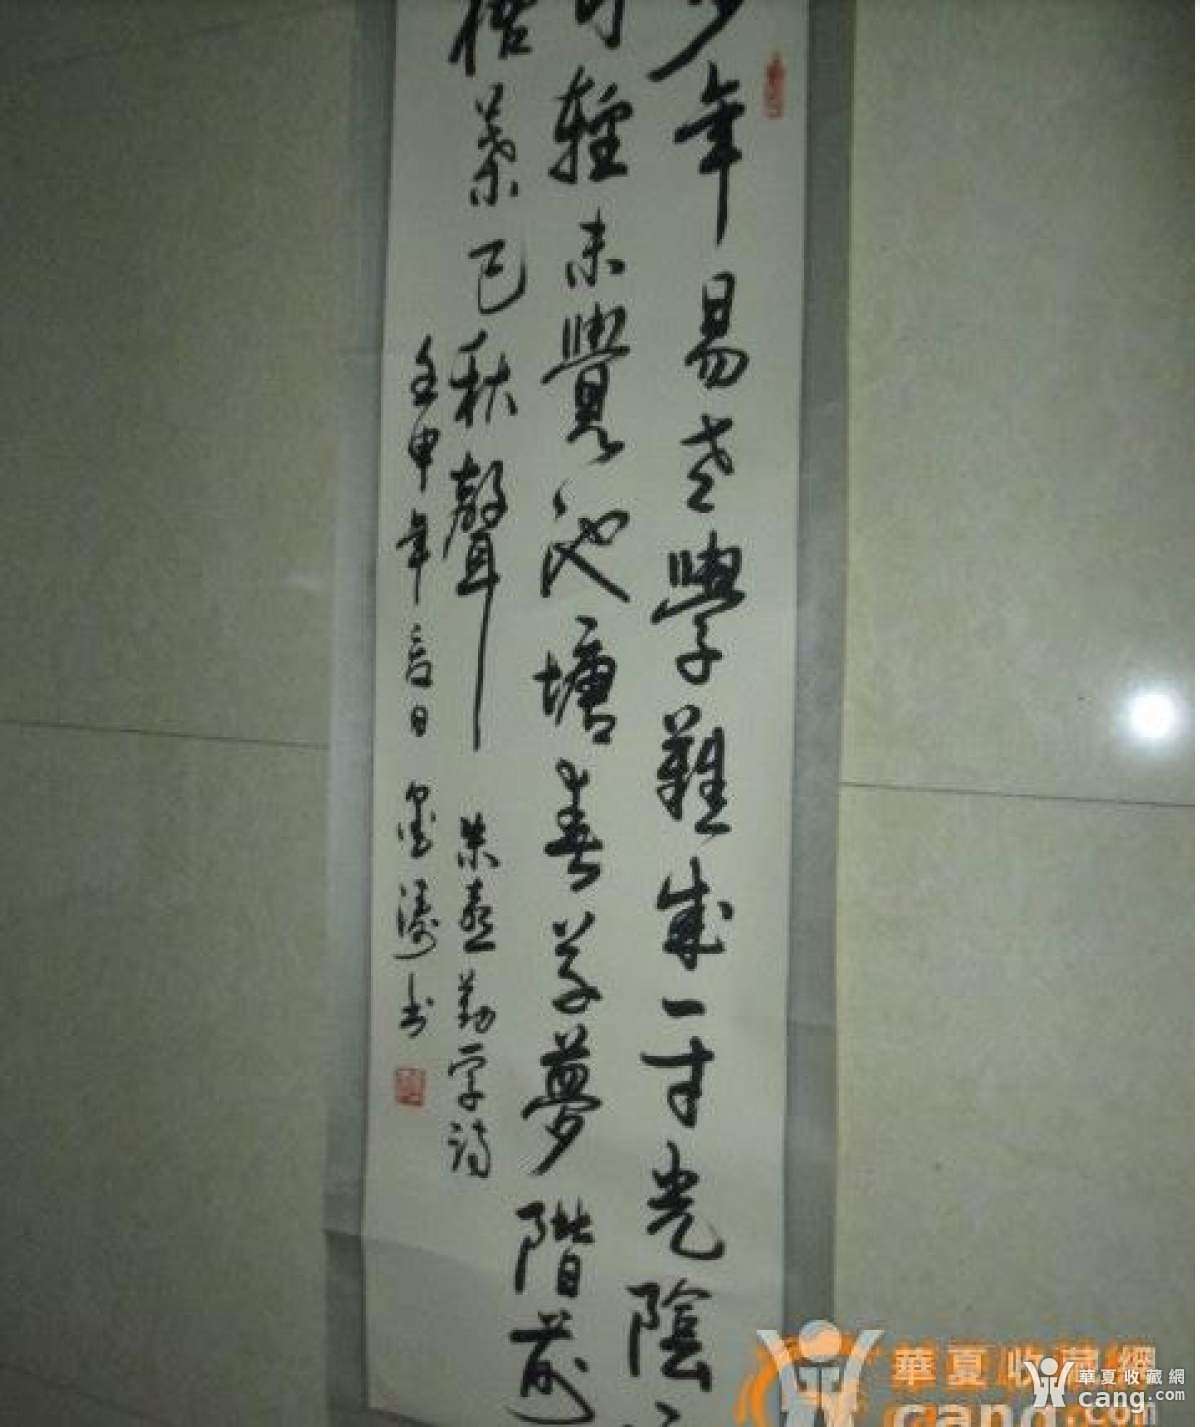 少年易老學難成一寸光陰
可輕未覺池塘春草夢階前
梧葉已秋聲 朱熹勤学詩
壬申年 春日 墨濤书
華夏收藏網
華夏收藏網
cang.com